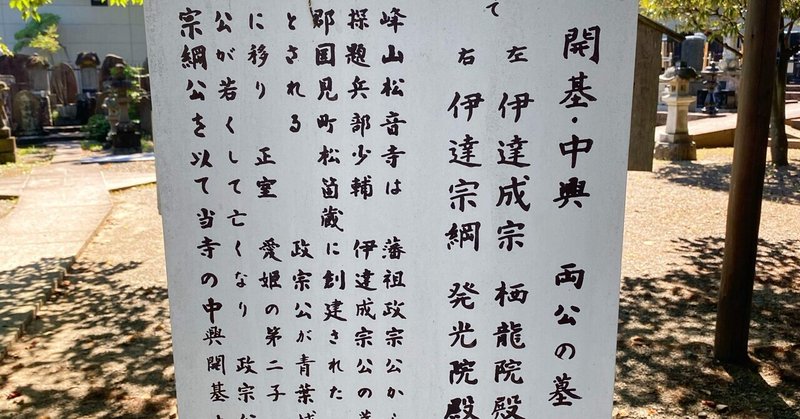 開基・中興 両公の墓
左 伊達成宗 栖龍院殿
右 伊達宗綱 発光院殿
て
峰山松音寺は 藩祖政宗公か
探題兵部少輔 伊達成宗公の
郡国見町松箇蔵に創建された
とされる 政宗公が青葉
に移り 正室 愛姫の第二子
公が若くして亡くなり 政宗
宗綱公を以て当寺の中興開基